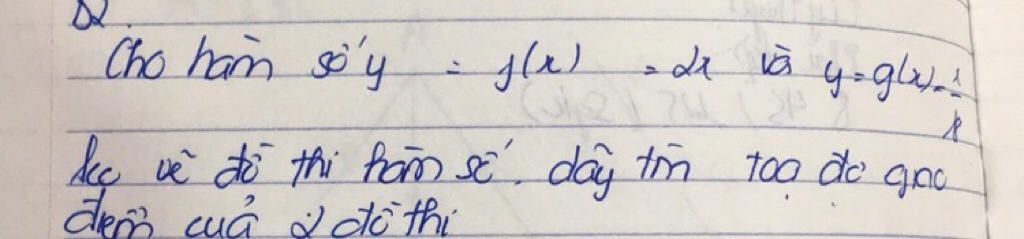 Cho hàm số y = f(x) = 2x và y = g(x) =
vẽ đồ thi hàm số. dãy tìm toạ đo giao
điểm cuả 2 đồ thi